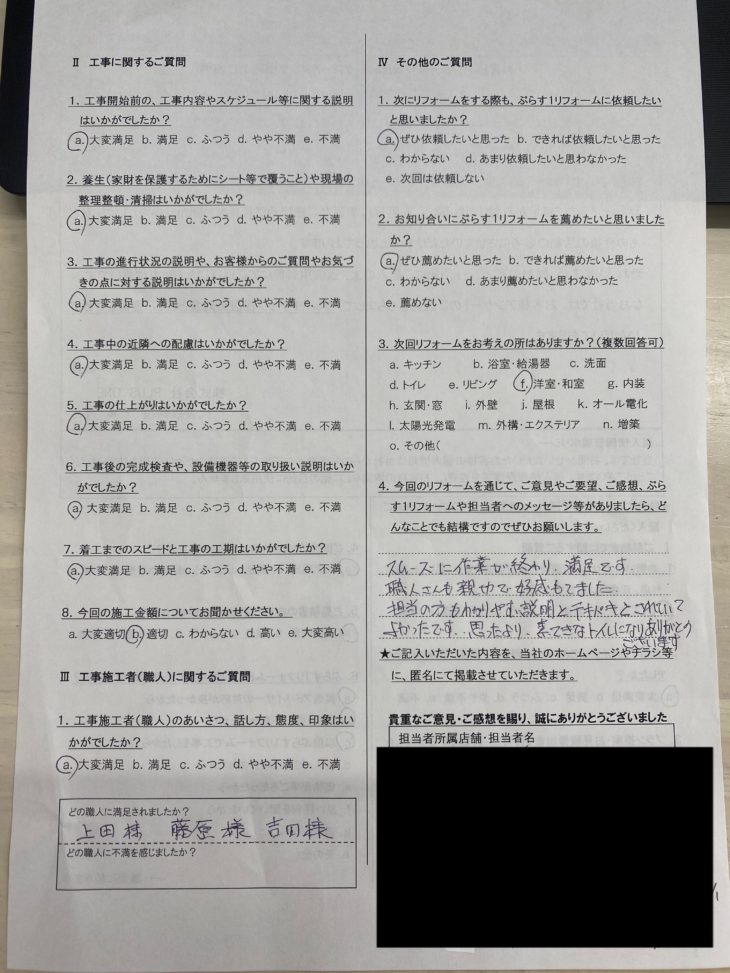 Ⅱ 工事に関するご質問
1. 工事開始前の、工事内容やスケジュール等に関する説明
はいかがでしたか?
a. 大変満足 b. 満足 c. ふつう d. やや不満 e. 不満
2. 養生(家財を保護するためにシート等で覆うこと)や現場の
整理整頓・清掃はいかがでしたか?
a. 大変満足 b. 満足 c. ふつう d. やや不満 e. 不満
3. 工事の進行状況の説明や、お客様からのご質問やお気づ
きの点に対する説明はいかがでしたか?
a. 大変満足 b. 満足 c. ふつう d. やや不満 e. 不満
4. 工事中の近隣への配慮はいかがでしたか?
a. 大変満足 b. 満足 c. ふつう d. やや不満 e. 不満
5. 工事の仕上がりはいかがでしたか?
a. 大変満足 b. 満足 c. ふつう d. やや不満 e. 不満
6. 工事後の完成検査や、設備機器等の取り扱い説明はいか
がでしたか?
a. 大変満足 b. 満足 c. ふつう d. やや不満 e. 不満
7. 着工までのスピードと工事の工期はいかがでしたか?
a. 大変満足 b. 満足 c. ふつう d. やや不満 e. 不満
8. 今回の施工金額についてお聞かせください。
a. 大変適切 b. 適切 c. わからない d. 高い e. 大変高い
Ⅲ 工事施工者(職人)に関するご質問
1. 工事施工者(職人)のあいさつ、話し方、態度、印象はい
かがでしたか?
a. 大変満足 b. 満足 c. ふつう d. やや不満 e. 不満
どの職人に満足されましたか?
上田様 藤原様 吉田様
どの職人に不満を感じましたか?
Ⅳ その他のご質問
1. 次にリフォームをする際も、ぷらす1リフォームに依頼したい
と思いましたか?
a. ぜひ依頼したいと思った b. できれば依頼したいと思った
c. わからない d. あまり依頼したいと思わなかった
e. 次回は依頼しない
2. お知り合いにぷらす1リフォームを薦めたいと思いました
か?
a. ぜひ薦めたいと思った b. できれば薦めたいと思った
c. わからない d. あまり薦めたいと思わなかった
e. 薦めない
3. 次回リフォームをお考えの所はありますか?(複数回答可)
a. キッチン b. 浴室・給湯器 c. 洗面
d. トイレ e. リビング f. 洋室・和室 g. 内装
h. 玄関・窓 i. 外壁 j. 屋根 k. オール電化
l. 太陽光発電 m. 外構・エクステリア n. 増築
o. その他( )
4. 今回のリフォームを通じて、ご意見やご要望、ご感想、ぷら
す1リフォームや担当者へのメッセージ等がありましたら、ど
んなことでも結構ですのでぜひお願いします。
スムーズに作業が終わり、満足です。
職人さんも親切で好感もてました。
担当の方もわかりやすい説明とテキパキとされていて
よかったです。思ったより、素てきなトイレになりありがとう
ございます
★ご記入いただいた内容を、当社のホームページやチラシ等
に、匿名にて掲載させていただきます。
貴重なご意見・ご感想を賜り、誠にありがとうございました
担当者所属店舗・担当者名